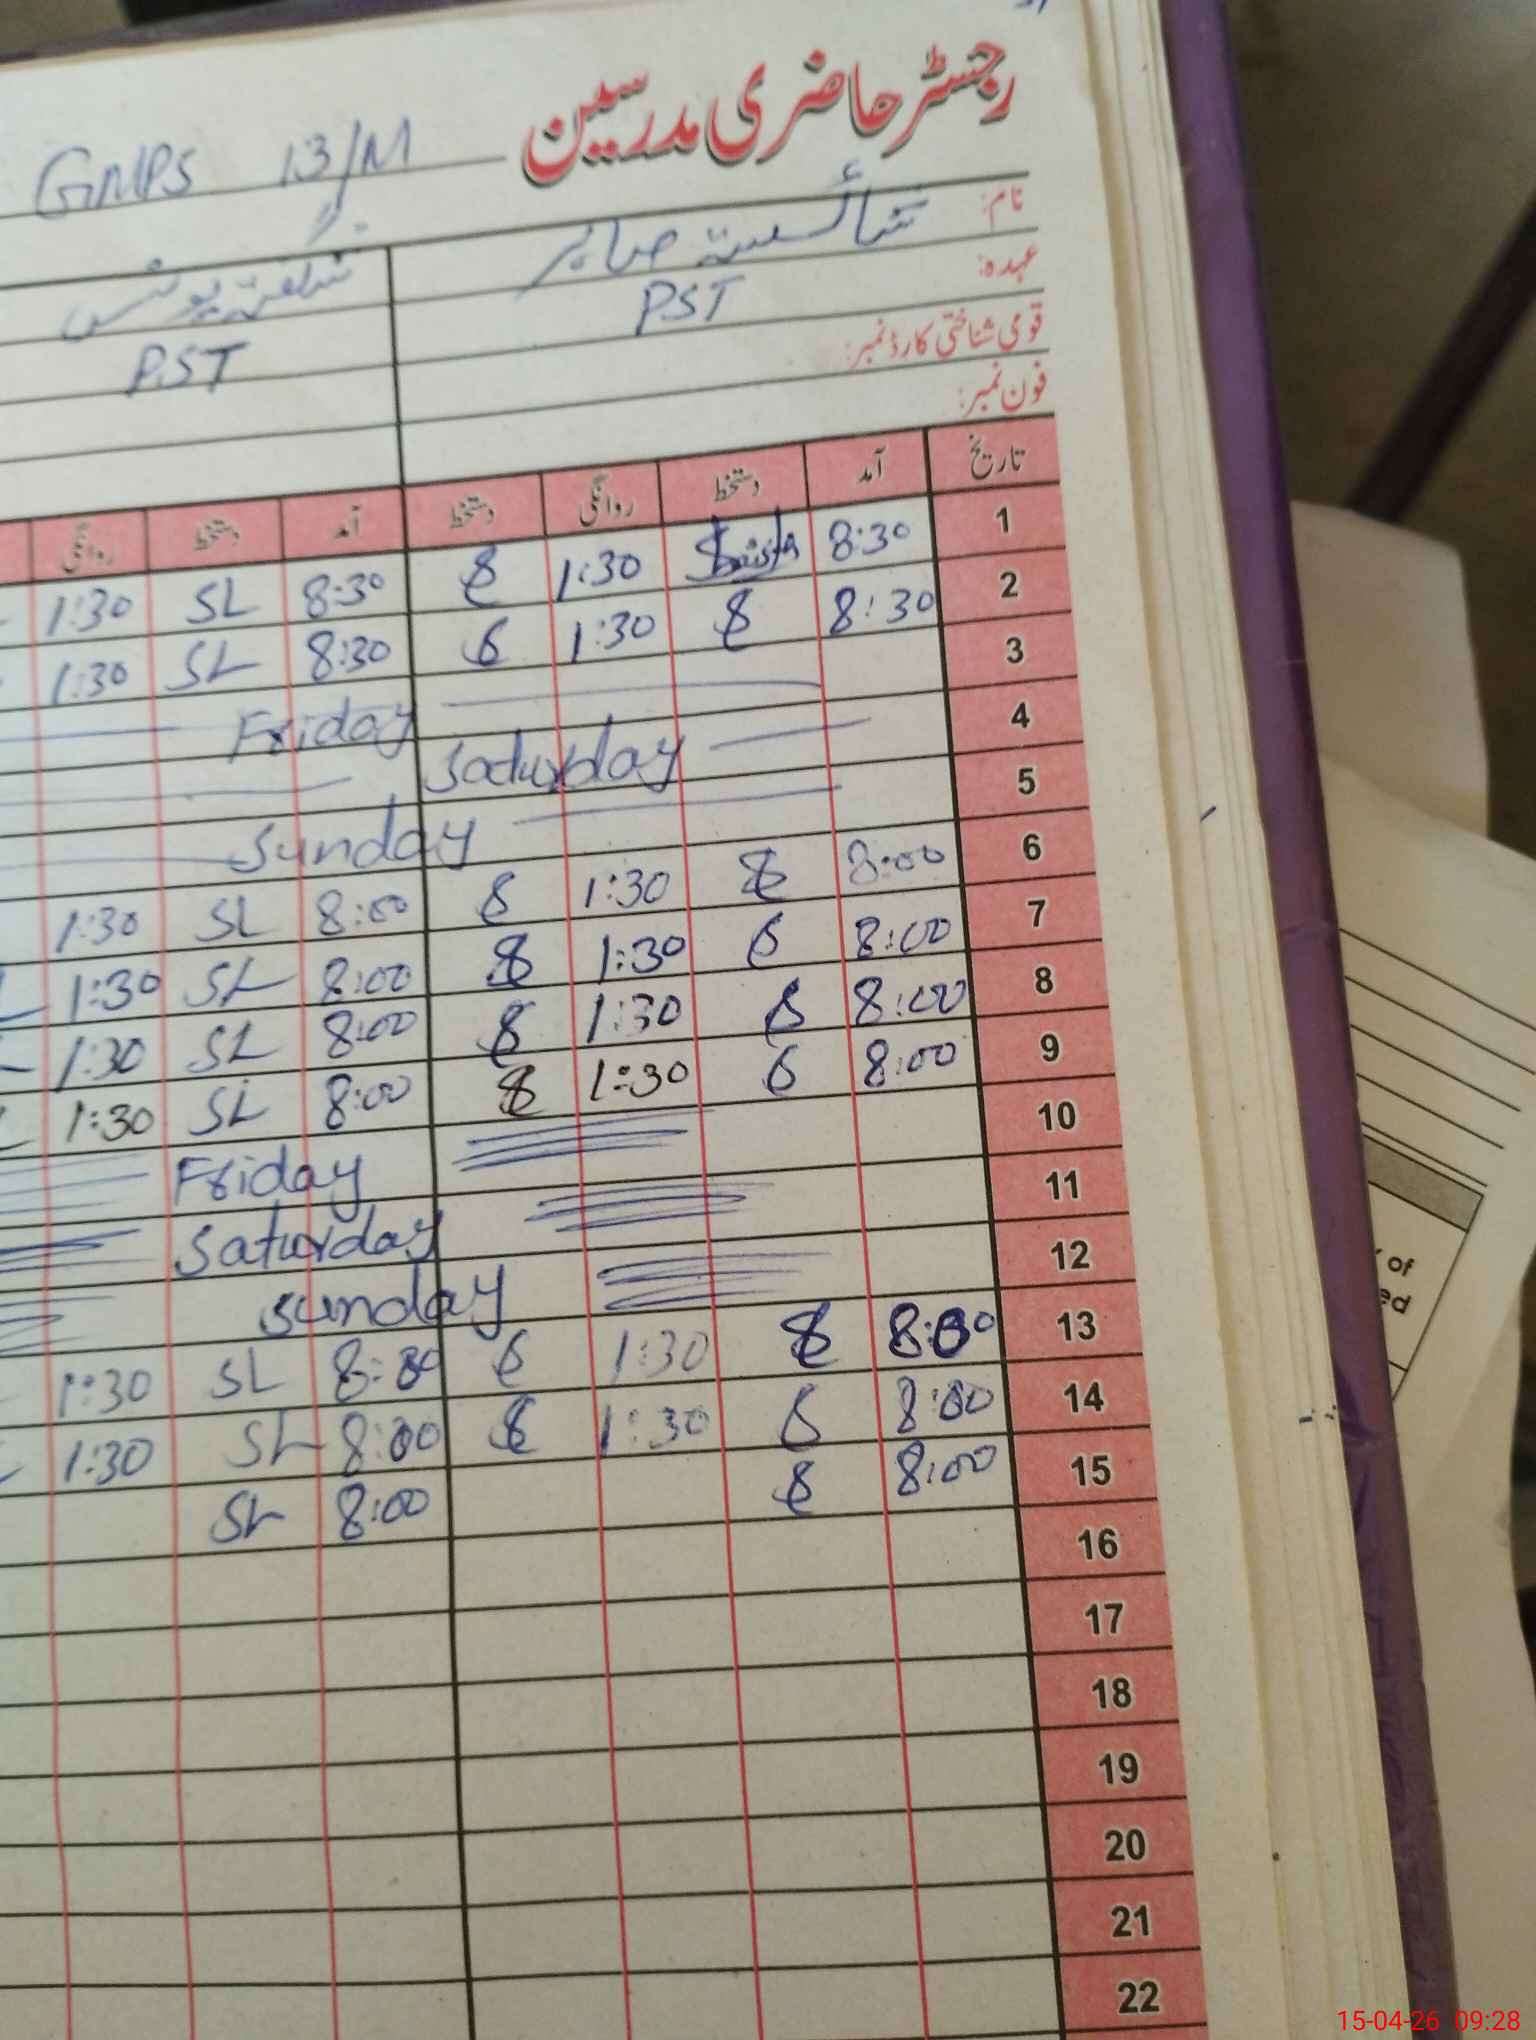 رجسٹر حاضری مدرسین
GMPS 13/M
نام: شائستہ صابر شگفتہ یونس
عہدہ: PST PST
قومی شناختی کارڈ نمبر:
فون نمبر:
تاریخ آمد دستخط روانگی دستخط آمد دستخط روانگی
1 8:30 1:30 8:30 SL 1:30
2 8:30 1:30 8:30 SL 1:30
3 Friday
4 Saturday
5 Sunday
6 8:00 1:30 8:00 SL 1:30
7 8:00 1:30 8:00 SL 1:30
8 8:00 1:30 8:00 SL 1:30
9 8:00 1:30 8:00 SL 1:30
10 Friday
11 Saturday
12 Sunday
13 1:30 SL 1:30
14 8:00 1:30 8:00 SL 1:30
15 8:00 8:00 SL
16
17
18
19
20
21
22
of
ed
15-04-26 09:28